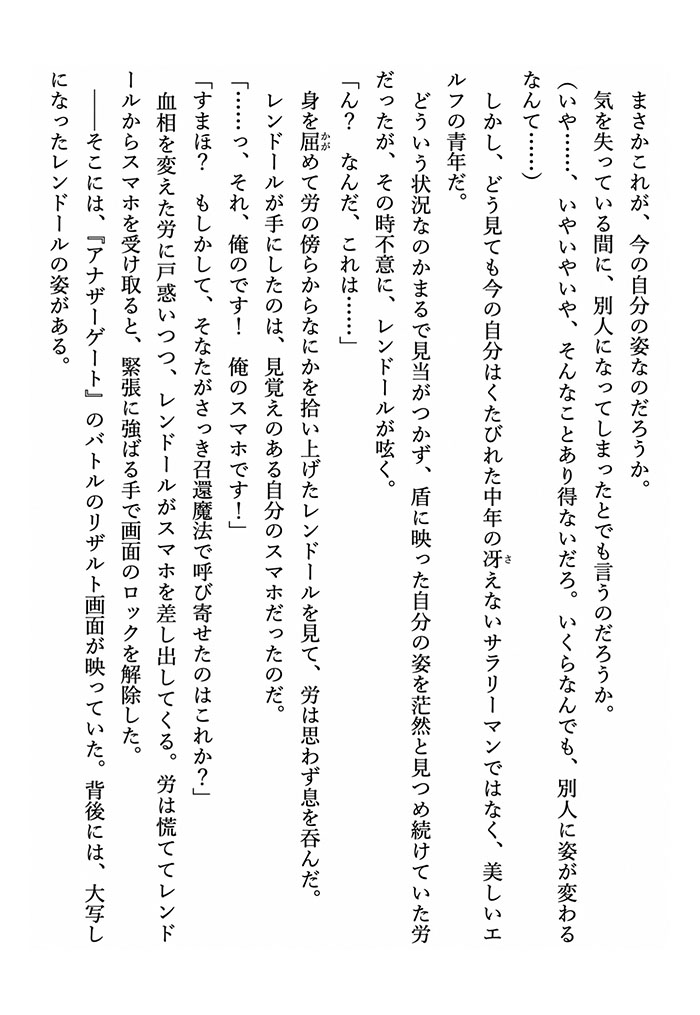 まさかこれが、今の自分の姿なのだろうか。
気を失っている間に、別人になってしまったとでも言うのだろうか。
（いや……、いやいやいや、そんなことあり得ないだろ。いくらなんでも、別人に姿が変わる
なんて……）
しかし、どう見ても今の自分はくたびれた中年の冴えないサラリーマンではなく、美しいエ
ルフの青年だ。
どういう状況なのかまるで見当がつかず、盾に映った自分の姿を茫然と見つめ続けていた労
だったが、その時不意に、レンドールが呟く。
「ん？　なんだ、これは……」
身を屈めて労の傍らからなにかを拾い上げたレンドールを見て、労は思わず息を呑んだ。
レンドールが手にしたのは、見覚えのある自分のスマホだったのだ。
「……っ、それ、俺のです！　俺のスマホです！」
「すまほ？　もしかして、そなたがさっき召還魔法で呼び寄せたのはこれか？」
血相を変えた労に戸惑いつつ、レンドールがスマホを差し出してくる。労は慌ててレンド
ールからスマホを受け取ると、緊張に強ばる手で画面のロックを解除した。
――そこには、『アナザーゲート』のバトルのリザルト画面が映っていた。背後には、大写し
になったレンドールの姿がある。